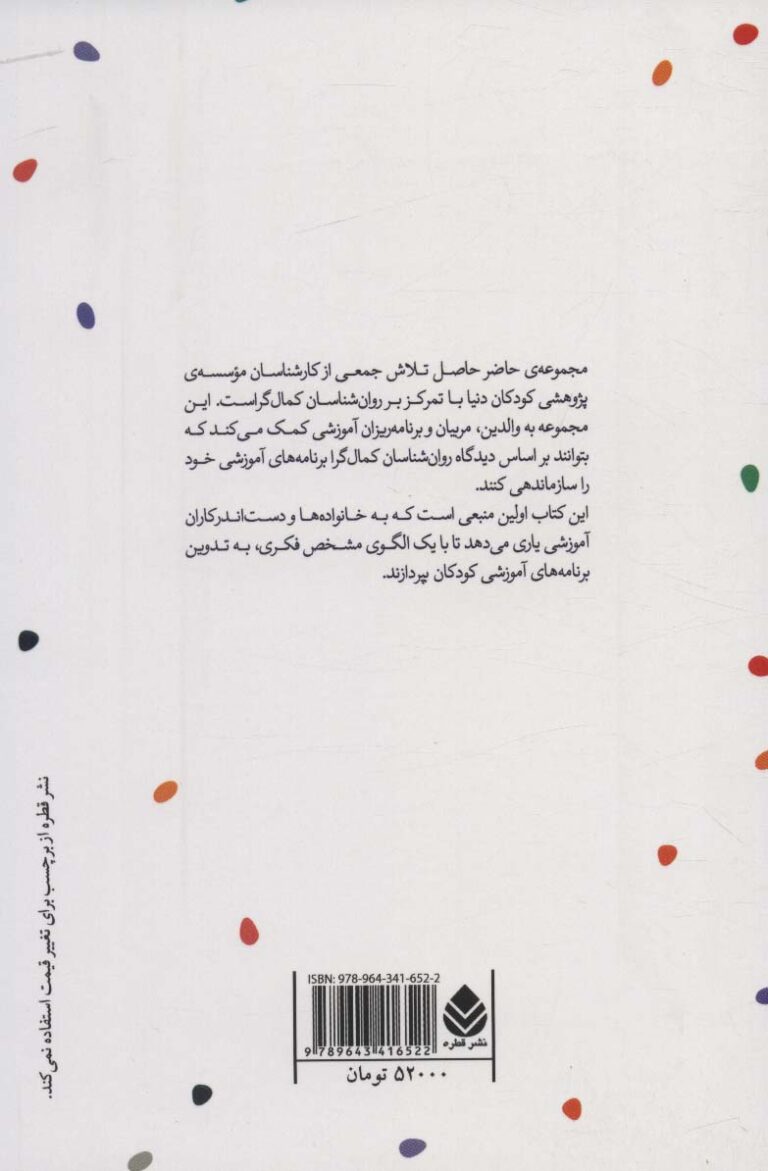 مجموعه‌ی حاضر حاصل تلاش جمعی از کارشناسان مؤسسه‌ی
پژوهشی کودکان دنیا با تمرکز بر روان‌شناسان کمال‌گراست. این
مجموعه به والدین، مربیان و برنامه‌ریزان آموزشی کمک می‌کند که
بتوانند بر اساس دیدگاه روان‌شناسان کمال‌گرا برنامه‌های آموزشی خود
را سازماندهی کنند.
این کتاب اولین منبعی است که به خانواده‌ها و دست‌اندرکاران
آموزشی یاری می‌دهد تا با یک الگوی مشخص فکری، به تدوین
برنامه‌های آموزشی کودکان بپردازند.
نشر قطره از برچسب برای تغییر قیمت استفاده نمی‌کند.
ISBN: 978-964-341-652-2
9 789643 416522
نشر قطره
۵۲۰۰۰ تومان